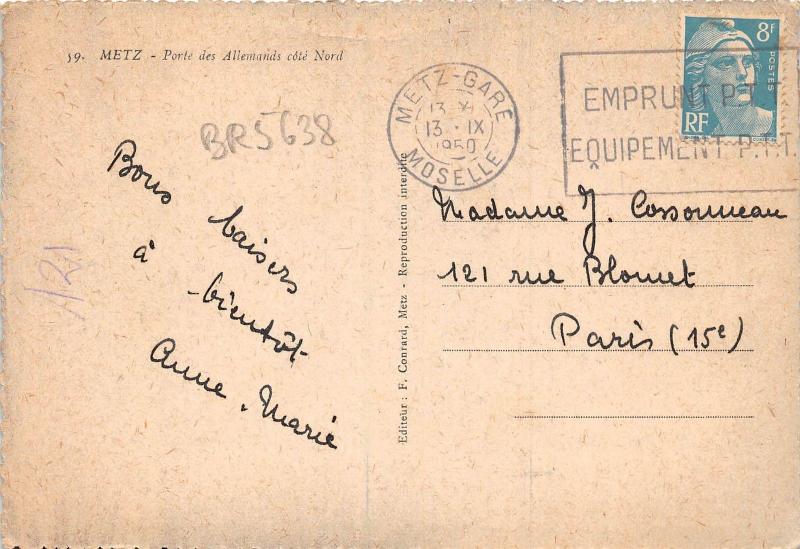 59. METZ - Porte des Allemands côté Nord
BR5638
METZ-GARE
13 · IX
1950
MOSELLE
EMPRUNT P.T.T.
EQUIPEMENT P.T.T.
8F
POSTES
RF
Bons baisers
à bientôt
Anne-Marie
1/21
Editeur : F. Conrard, Metz - Reproduction interdite
Madame J. Cossonneau
121 rue Blomet
Paris (15e)